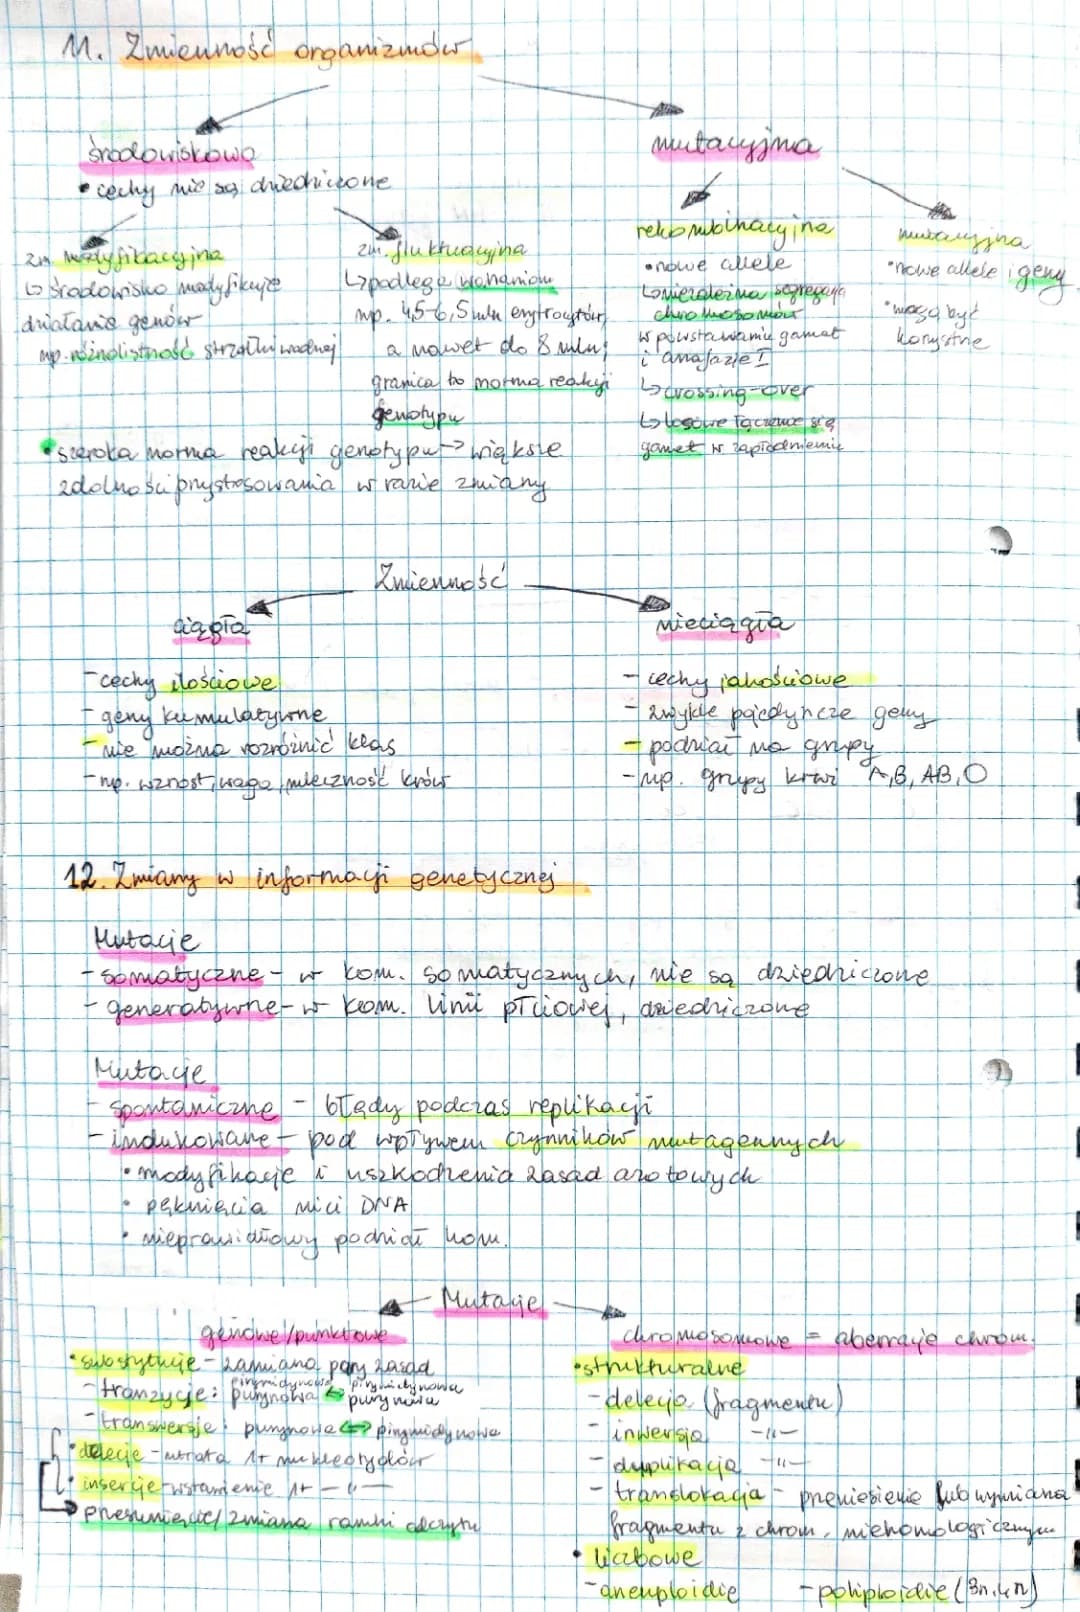 11. Zmienność organizmów
środowiskowa
• cechy nie są dziedziczone
zm. modyfikacyjna
↳ środowisko modyfikuje
działanie genów
np. różnolistność strzałki wodnej
zm. fluktuacyjna
↳ podlega wahaniom
np. 4,5-6,5 mln erytrocytów,
a nawet do 8 mln;
granica to norma reakcji
genotypu
• szeroka norma reakcji genotypu → większe
zdolności przystosowania w razie zmiany
mutacyjna
rekombinacyjna
• nowe allele
↳ niezależna segregacja
chromosomów
w powstawaniu gamet
i anafazie I
↳ crossing-over
↳ losowe łączenie się
gamet w zapłodnieniu
mutacyjna
• nowe allele i geny
• mogą być
korzystne
Zmienność
ciągła
- cechy ilościowe
- geny kumulatywne
- nie można rozróżnić klas
- np. wzrost, waga, mleczność krów
nieciągła
- cechy jakościowe
- zwykle pojedyncze geny
- podział na grupy
- np. grupy krwi A, B, AB, O
12. Zmiany w informacji genetycznej
Mutacje
- somatyczne - w kom. somatycznych, nie są dziedziczone
- generatywne - w kom. linii płciowej, dziedziczone
Mutacje
- spontaniczne - błędy podczas replikacji
- indukowane - pod wpływem czynników mutagennych
• modyfikacje i uszkodzenia zasad azotowych
• pęknięcia nici DNA
• nieprawidłowy podział kom.
Mutacje
genowe/punktowe
• substytucje - zamiana pary zasad
- tranzycje: pirymidynowa pirymidynowa
purynowa ↔ purynowa
- transwersje: purynowa ↔ pirymidynowa
• delecje - utrata 1+ nukleotydów
• insercje - wstawienie 1+ -"-
przesunięcie/zmiana ramki odczytu
chromosomowe = aberracje chrom.
• strukturalne
- delecja (fragmentu)
- inwersja -"-
- duplikacja -"-
- translokacja - przeniesienie lub wymiana
fragmentu z chrom. niehomologicznym
• liczbowe
- aneuploidie - poliploidie (3n, 4n)